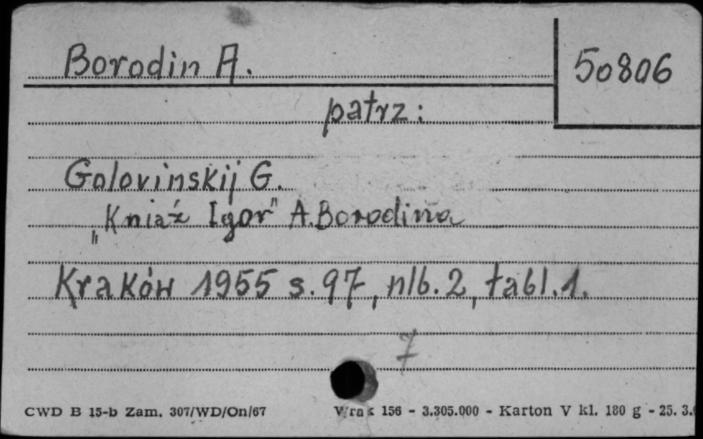 Borodin A.
50806
patrz:
Golovinskij G.
„Kniaź Igor" A. Borodina
Kraków 1955 s. 97, nlb. 2, tabl. 1.
7
CWD B 15-b Zam. 307/WD/On/67 156 - 3.305.000 - Karton V kl. 180 g - 25. 3.